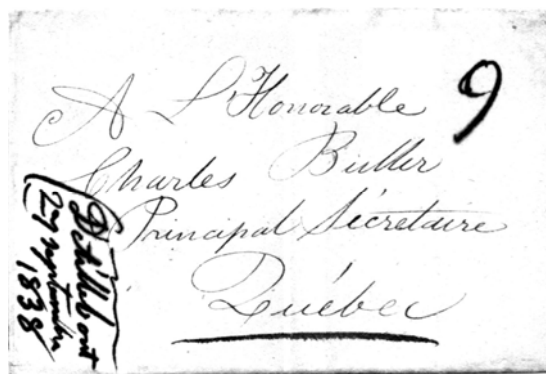 A L'Honorable
9
Charles Buller
Principal Sécretaire
Québec
27 septembre
1838